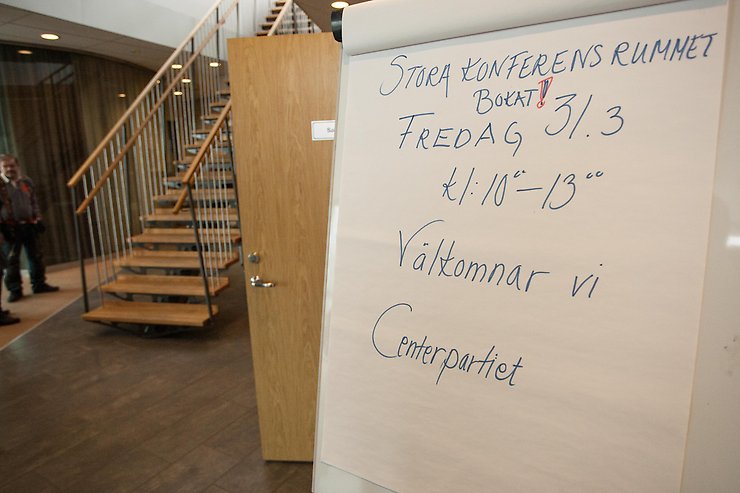 STORA KONFERENSRUMMET
BOKAT!
FREDAG 31.3
kl: 10⁰⁰-13⁰⁰
Välkomnar vi
Centerpartiet